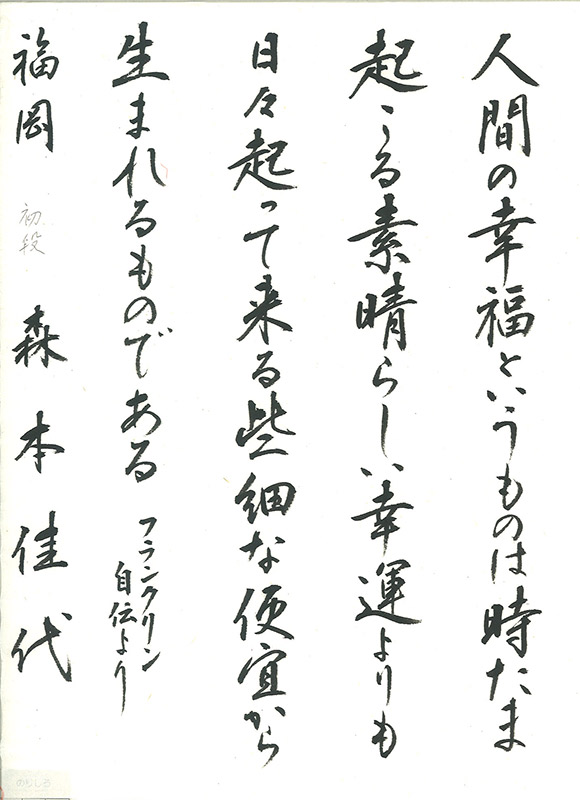 人間の幸福というものは時たま
起こる素晴らしい幸運よりも
日々起って来る些細な便宜から
生まれるものである
フランクリン
自伝より
福岡 初段 森本佳代
のりしろ